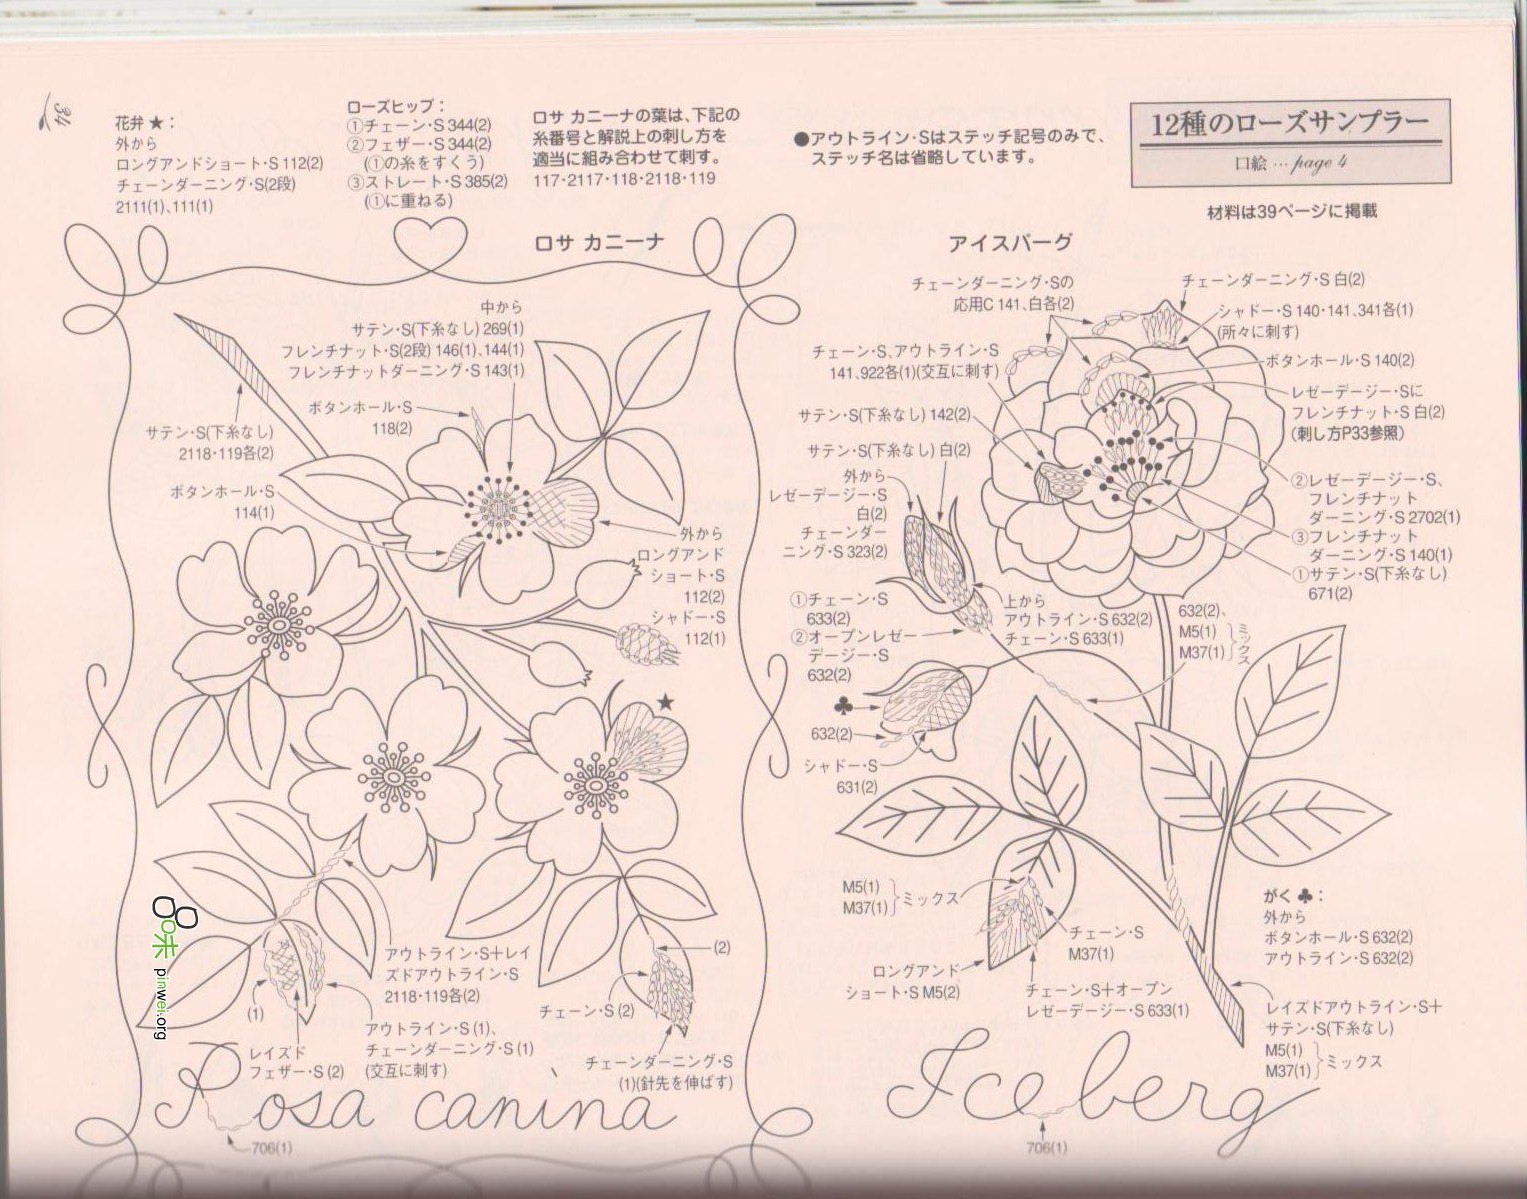 34
花弁★：
外から
ロングアンドショート・S 112(2)
チェーンダーニング・S(2段)
2111(1)、111(1)
ローズヒップ：
①チェーン・S 344(2)
②フェザー・S 344(2)
(①の糸をすくう)
③ストレート・S 385(2)
(①に重ねる)
ロサ カニーナの葉は、下記の
糸番号と解説上の刺し方を
適当に組み合わせて刺す。
117・2117・118・2118・119
●アウトライン・Sはステッチ記号のみで、
ステッチ名は省略しています。
12種のローズサンプラー
口絵 … page 4
材料は39ページに掲載
ロサ カニーナ
中から
サテン・S(下糸なし) 269(1)
フレンチナット・S(2段) 146(1)、144(1)
フレンチナットダーニング・S 143(1)
ボタンホール・S
118(2)
サテン・S(下糸なし)
2118・119各(2)
ボタンホール・S
114(1)
外から
ロングアンド
ショート・S
112(2)
シャドー・S
112(1)
★
アウトライン・S＋レイ
ズドアウトライン・S
2118・119各(2)
(1)
レイズド
フェザー・S (2)
アウトライン・S (1)、
チェーンダーニング・S (1)
(交互に刺す)
(2)
チェーン・S (2)
チェーンダーニング・S
(1)(針先を伸ばす)
Rosa canina
706(1)
アイスバーグ
チェーンダーニング・Sの
応用C 141、白各(2)
チェーンダーニング・S 白(2)
シャドー・S 140・141、341各(1)
(所々に刺す)
チェーン・S、アウトライン・S
141、922各(1)(交互に刺す)
ボタンホール・S 140(2)
レゼーデージー・Sに
フレンチナット・S 白(2)
(刺し方P33参照)
サテン・S(下糸なし) 142(2)
サテン・S(下糸なし) 白(2)
外から
レゼーデージー・S
白(2)
チェーンダー
ニング・S 323(2)
②レゼーデージー・S、
フレンチナット
ダーニング・S 2702(1)
③フレンチナット
ダーニング・S 140(1)
①サテン・S(下糸なし)
671(2)
①チェーン・S
633(2)
②オープンレゼー
デージー・S
632(2)
上から
アウトライン・S 632(2)
チェーン・S 633(1)
632(2)、
M5(1)
M37(1)
ミックス
♣
632(2)
シャドー・S
631(2)
M5(1)
M37(1)
ミックス
チェーン・S
M37(1)
ロングアンド
ショート・S M5(2)
チェーン・S＋オープン
レゼーデージー・S 633(1)
がく♣：
外から
ボタンホール・S 632(2)
アウトライン・S 632(2)
レイズドアウトライン・S＋
サテン・S(下糸なし)
M5(1)
M37(1)
ミックス
Iceberg
706(1)
pinwei.org